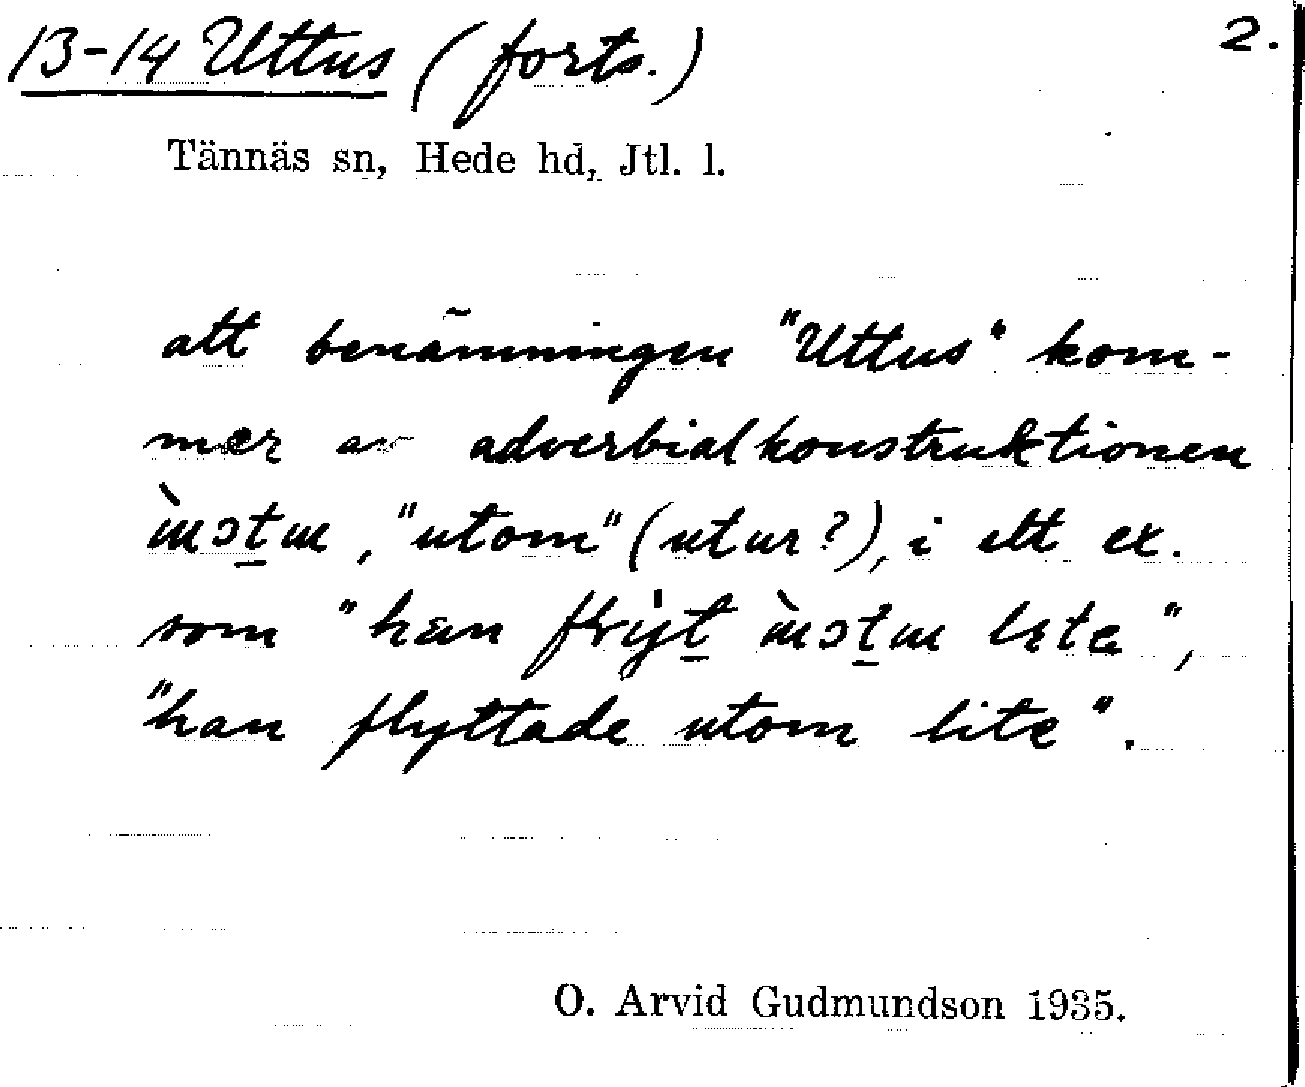 13-14 Uttus (forts.) 2.
Tännäs sn, Hede hd, Jtl. l.
att benämningen "Uttus" kom-
mer av adverbialkonstruktionen
, "utom" (utur?), i ett ex.
som "han
"han flyttade utom lite".
O. Arvid Gudmundson 1935.